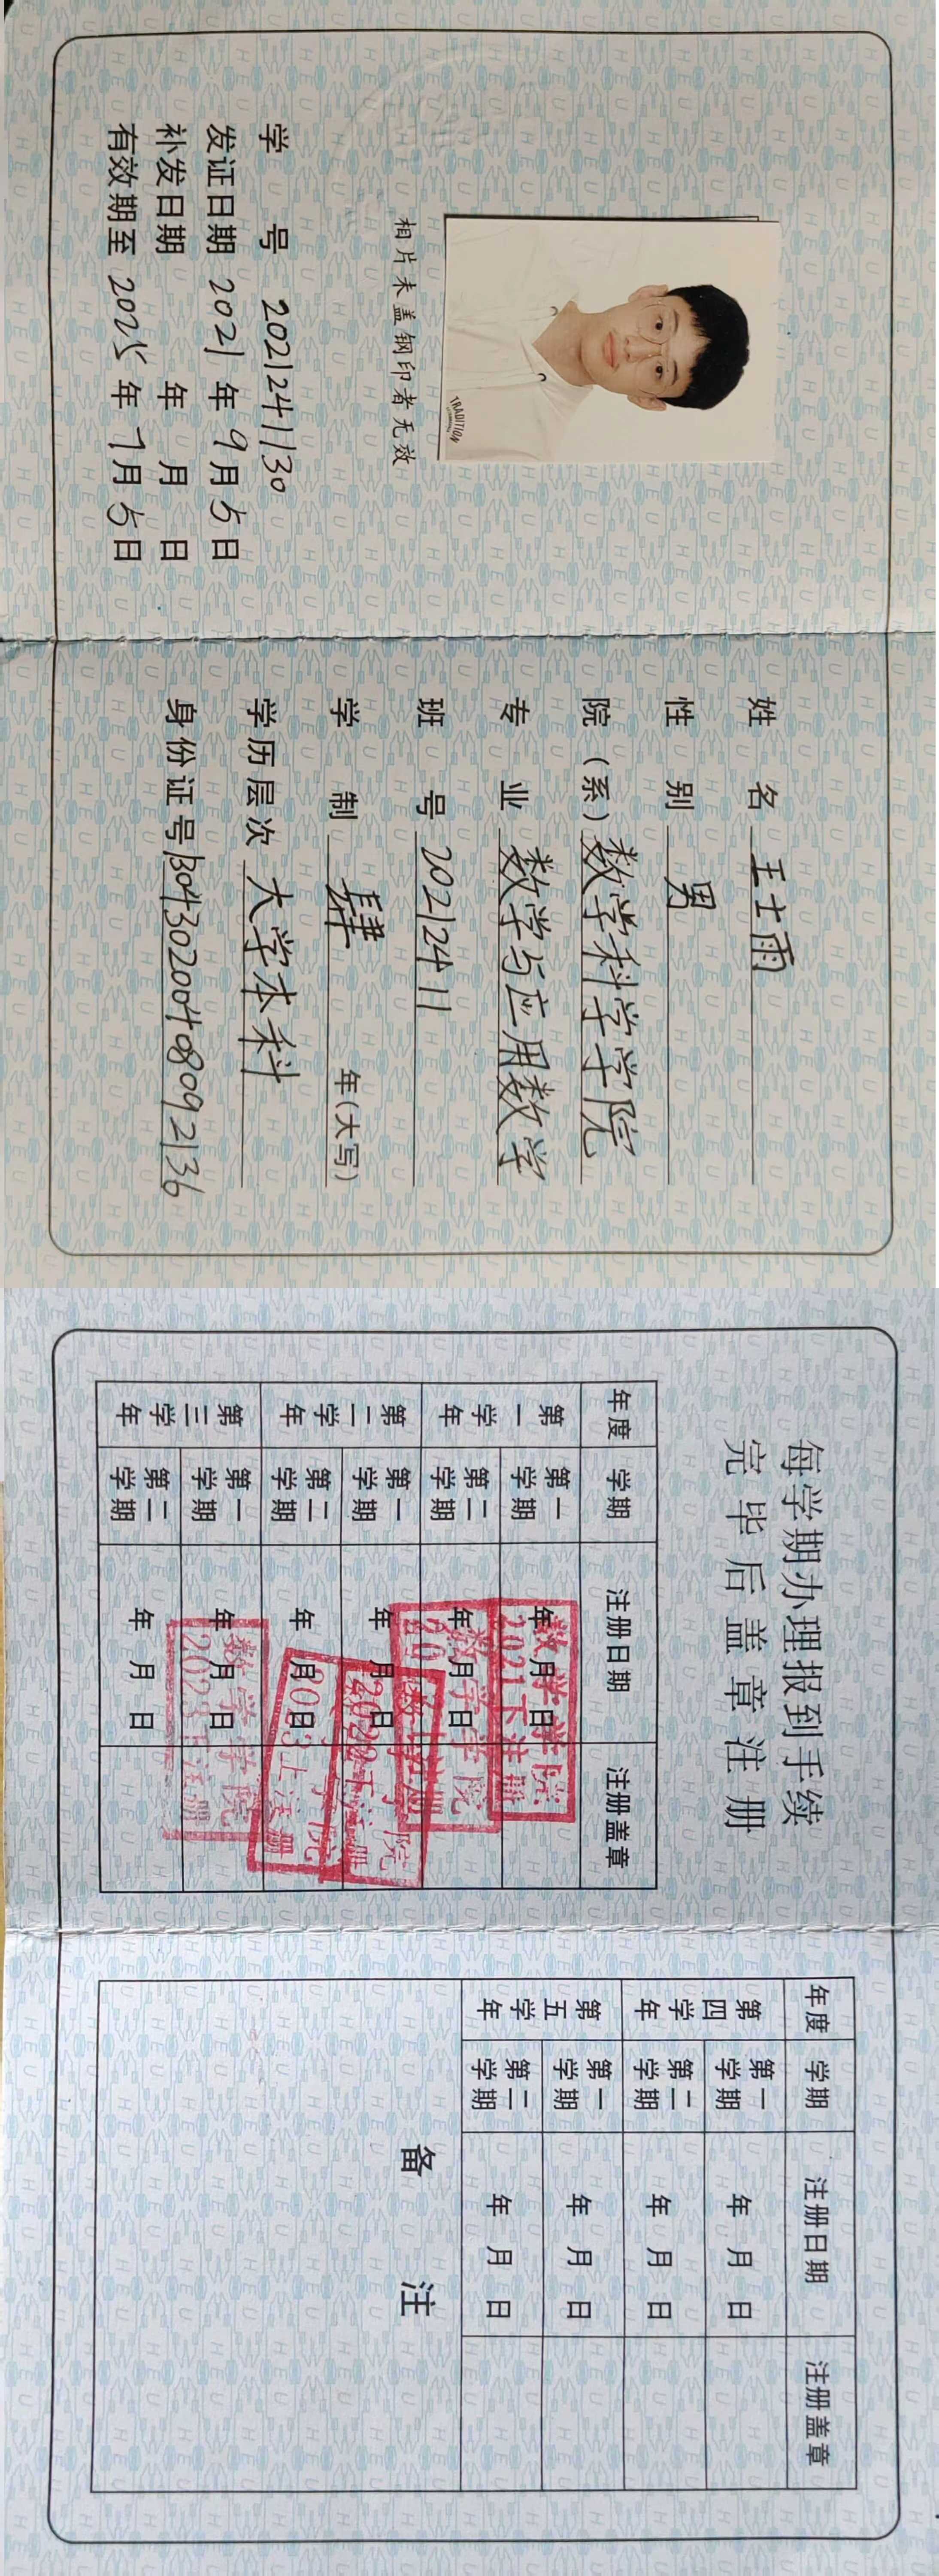 TRADITION
相片未盖钢印者无效
学 号 2021241130
发证日期 2021 年 9 月 5 日
补发日期 年 月 日
有效期至 2025 年 7 月 5 日
姓 名 王士雨
性 别 男
院 (系) 数学科学学院
专 业 数学与应用数学
班 号 20212411
学 制 肆 年(大写)
学历层次 大学本科
身份证号 130430200408092136
每学期办理报到手续
完毕后盖章注册
年度 学期 注册日期 注册盖章
第一学年 第一学期 年 月 日
数学学院
2021下注册
第二学期 年 月 日
数学学院
上注册
第二学年 第一学期 年 月 日
学院
2022下注册
第二学期 年 月 日
学院
2023上注册
第三学年 第一学期 年 月 日
数学学院
2023下注册
第二学期 年 月 日
年度 学期 注册日期 注册盖章
第四学年 第一学期 年 月 日
第二学期 年 月 日
第五学年 第一学期 年 月 日
第二学期 年 月 日
备 注
HEU